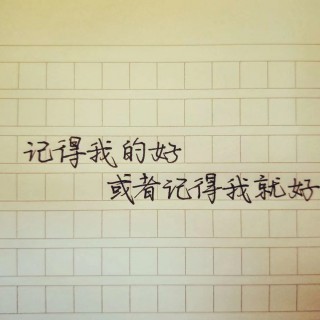 记得我的好
或者记得我就好